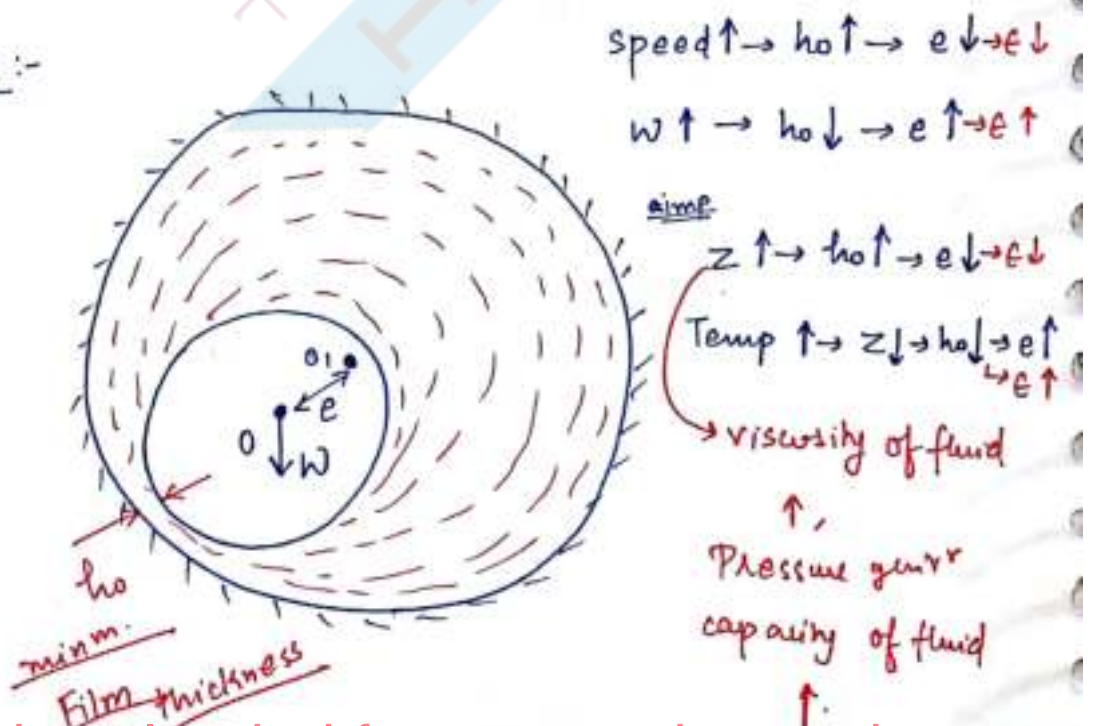 :-
speed ↑ → ho ↑ → e ↓ → ϵ ↓
W ↑ → ho ↓ → e ↑ → ϵ ↑
Z ↑ → ho ↑ → e ↓ → ϵ ↓
Temp ↑ → Z ↓ → ho ↓ → e ↑
↳ ϵ ↑
→ viscosity of fluid
↑,
Pressure genrr
capacity of fluid
↑.
O1
e
O
W
ho
minm.
Film thickness